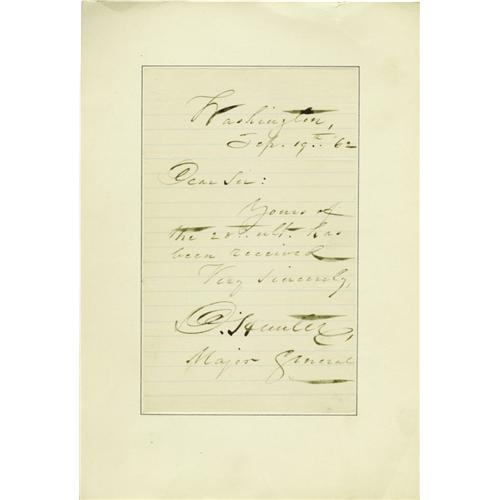 Washington,
Sep. 19th. 62
Dear Sir:
Yours of
the 28th. ult. has
been received
Very sincerely,
D. Hunter,
Major General